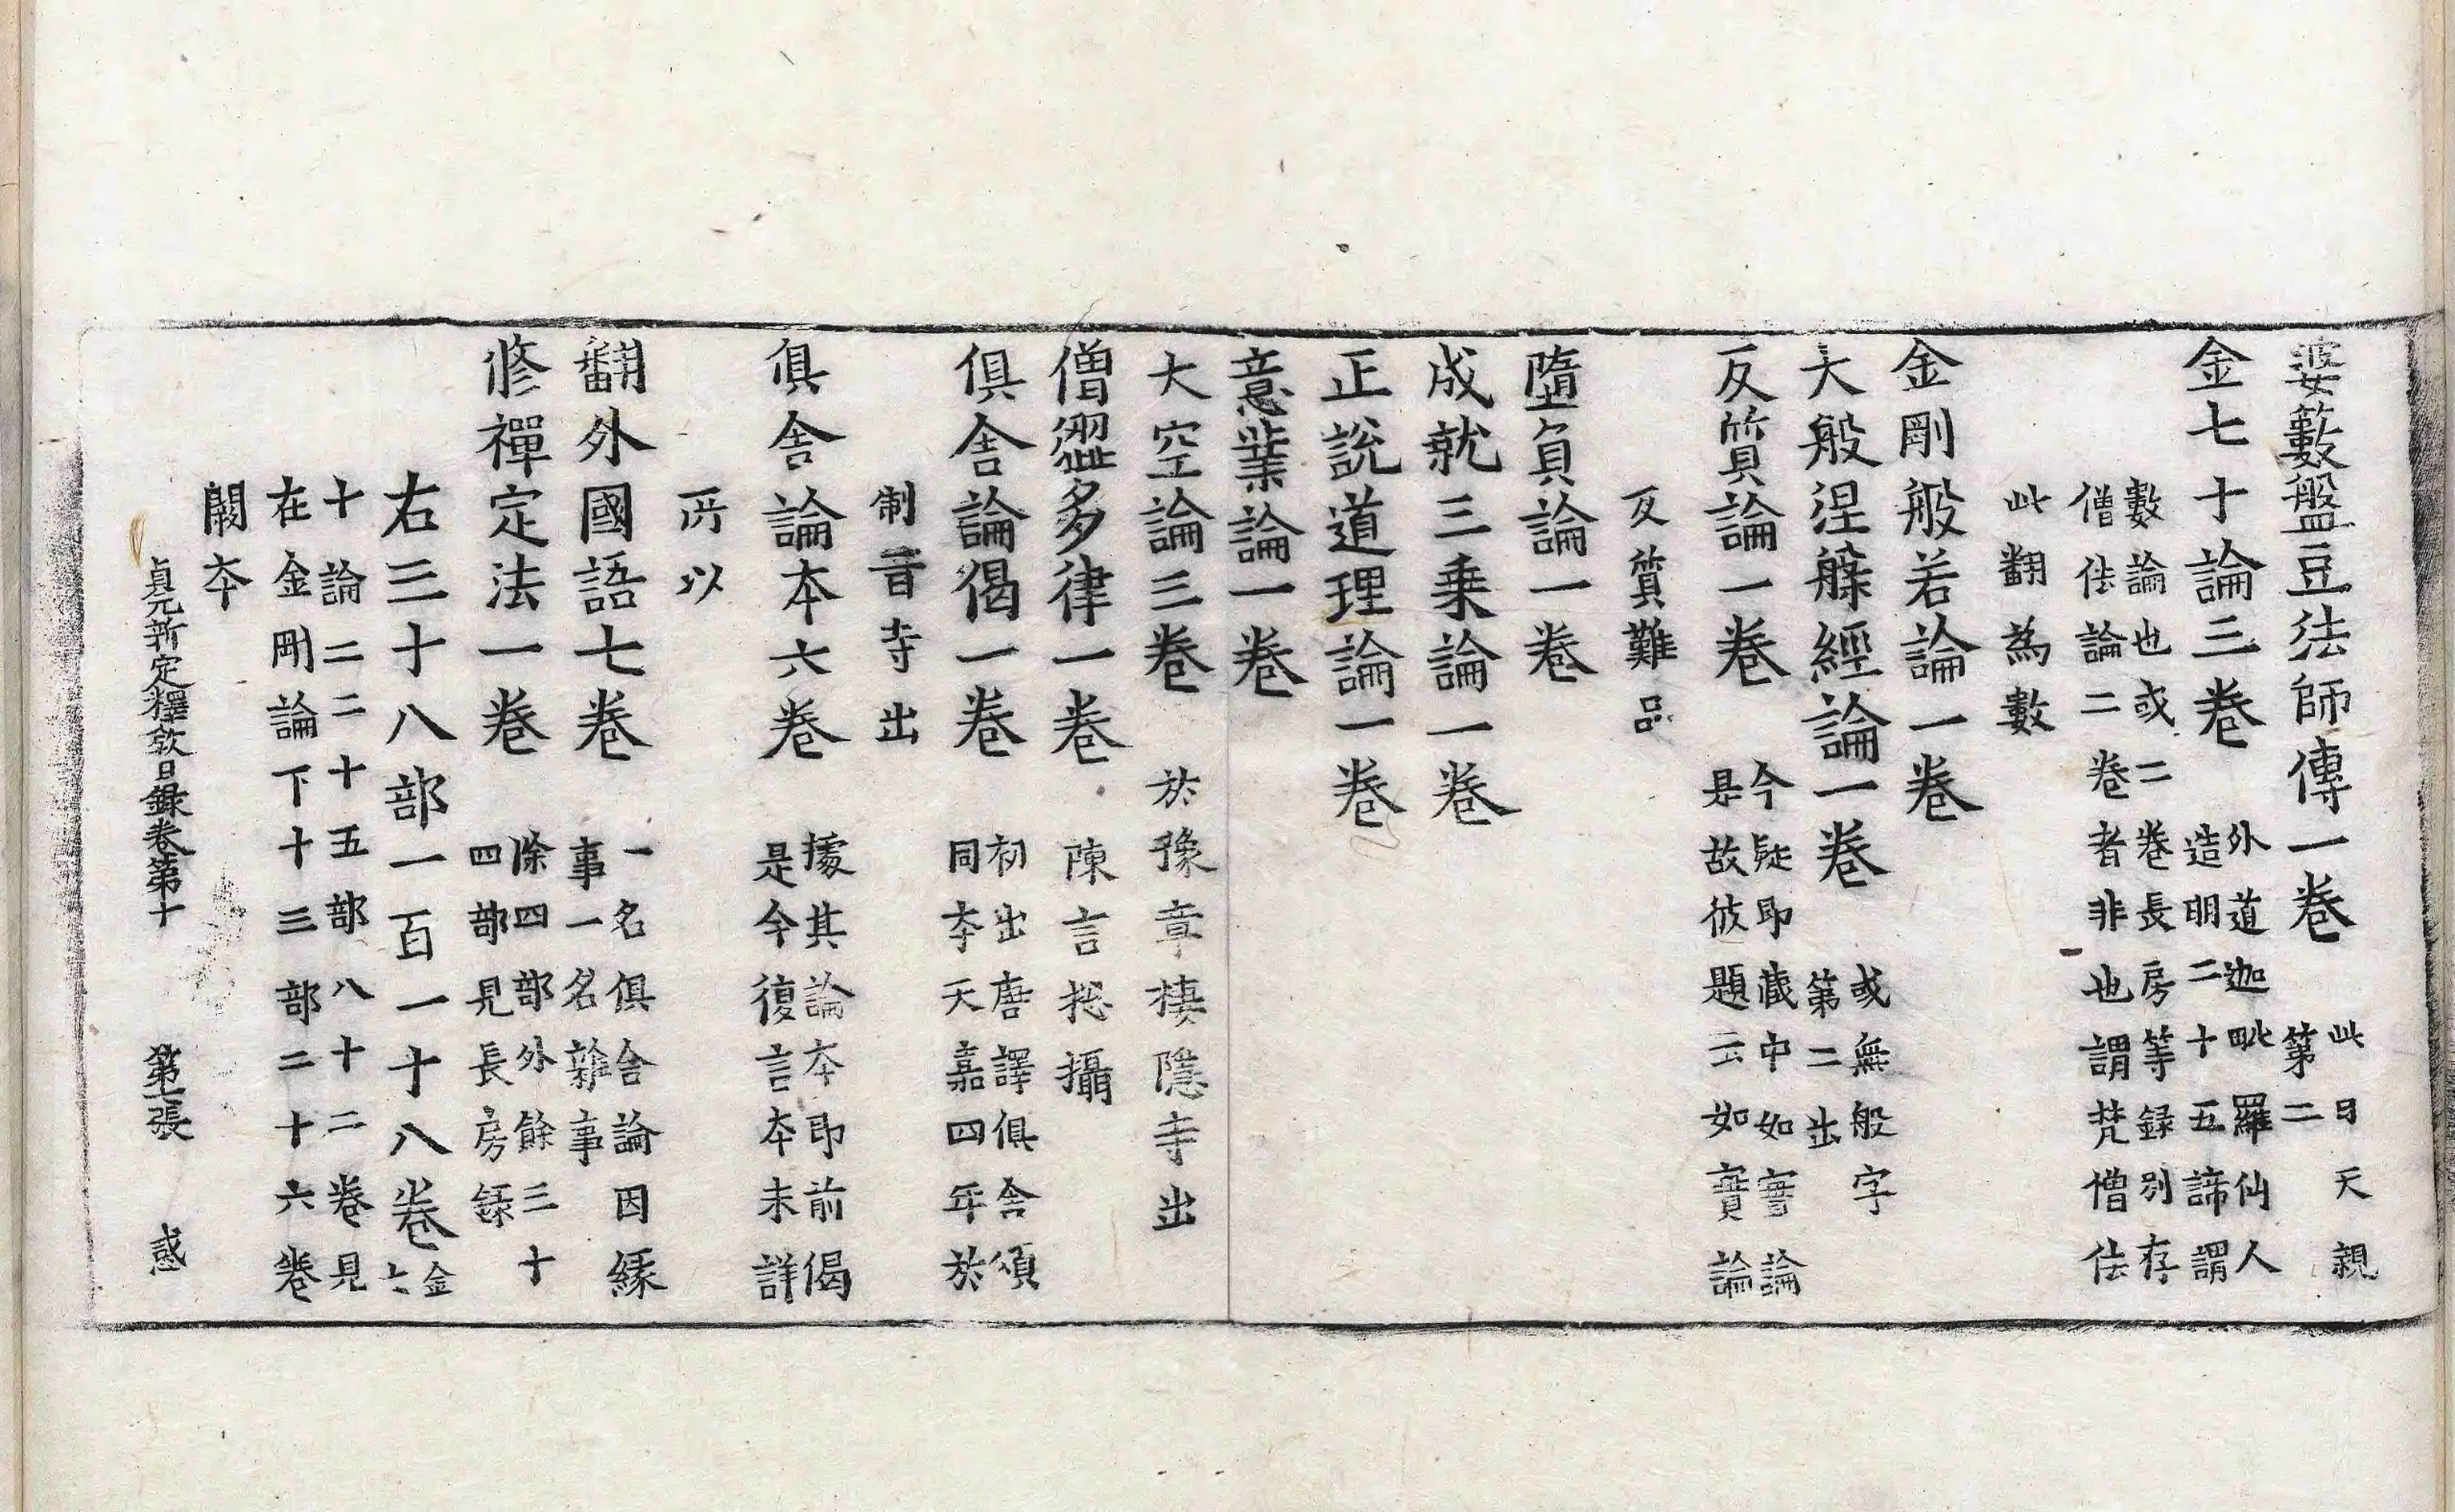 婆藪盤豆法師傳一卷此曰天親第二
金七十論三卷外道迦毗羅仙人造明二十五諦謂
數論也或二卷長房等録別存僧佉論二卷者非也謂梵僧佉
此翻為數
金剛般若論一卷
大般涅槃經論一卷或無般字第二出
反質論一卷今疑即藏中如實論是故彼題云如實論
反質難品
墮負論一卷
成就三乗論一卷
正說道理論一卷
意業論一卷
大空論三卷於豫章棲隱寺出
僧澀多律一卷陳言揔攝
俱舍論偈一卷初出唐譯俱舍頌同夲天嘉四年於
制旨寺出
俱舍論本六卷據其論夲即前偈是今復言夲未詳
所以
翻外國語七卷一名俱舍論因縁事一名雜事
修禪定法一卷除四部外餘三十四部見長房録
右三十八部一百一十八卷金七
十論二二十五部八十二卷見
在金剛論下十三部二十六卷
闕夲
貞元新定釋教目録卷第十　第七張　惑